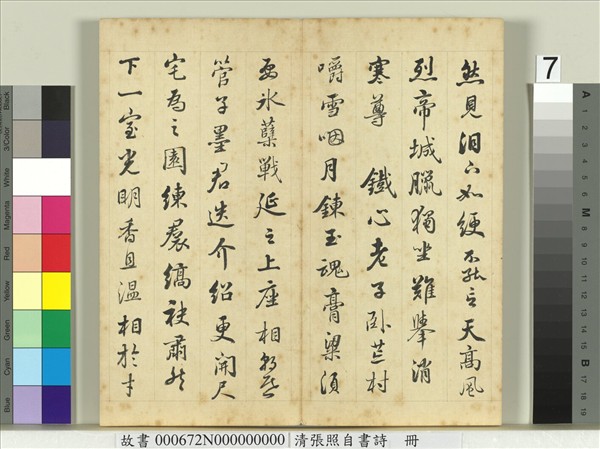 然見泪下如綆不能言天高風
烈帝城臘獨坐難舉消
寒尊 鐵心老子卧芒村
嚼雪咽月鍊玉魂膏粱須
要氷蘖戰延之上座相
管子墨君迭介紹更開尺
宅為之園練裠縞袂肅然
下一室光明香且溫相於才
7
故書 000672N000000000 清張照自書詩 冊
Black
3/Color
White
Magenta
Red
Yellow
Green
Cyan
Blue
A 1 2 3 4 5 6 M 8 9 10 11 12 13 14 15 B 17 18 19